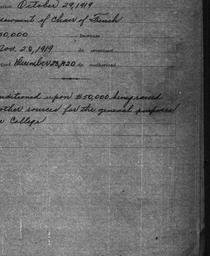 October 29, 1919
Endowment of Chair of French
50,000 Increase
Nov. 28, 1919 do received
December 23, 1920 do authorized
conditioned upon $50,000 being raised
other sources for the general purposes
College